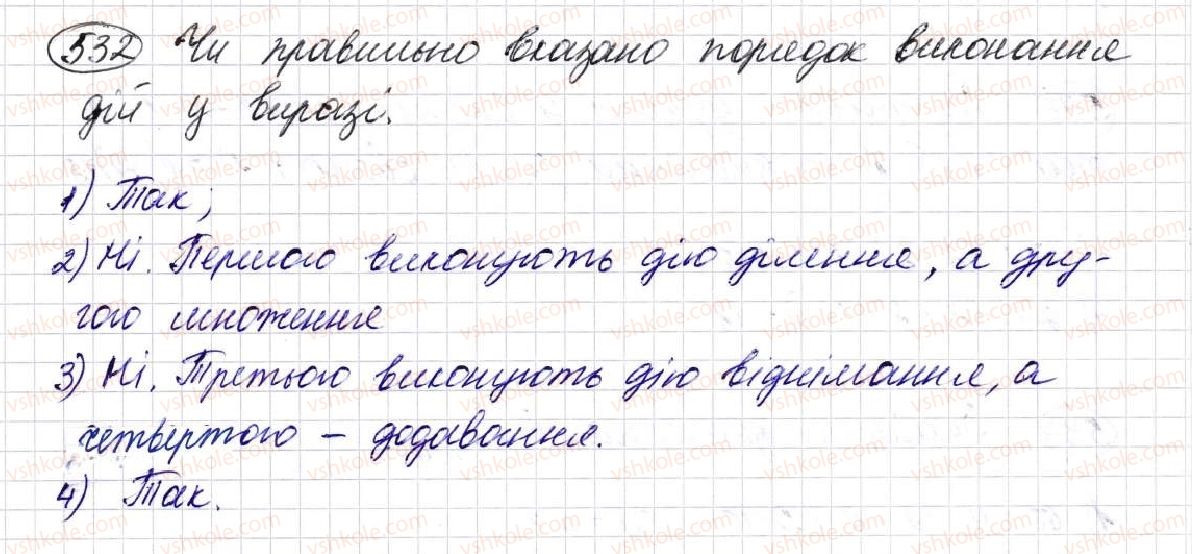 532 Чи правильно вказано порядок виконання
дій у виразі.
1) Так;
2) Ні. Першою виконують дію ділення, а дру-
гою множення
3) Ні. Третьою виконують дію віднімання, а
четвертою – додавання.
4) Так.